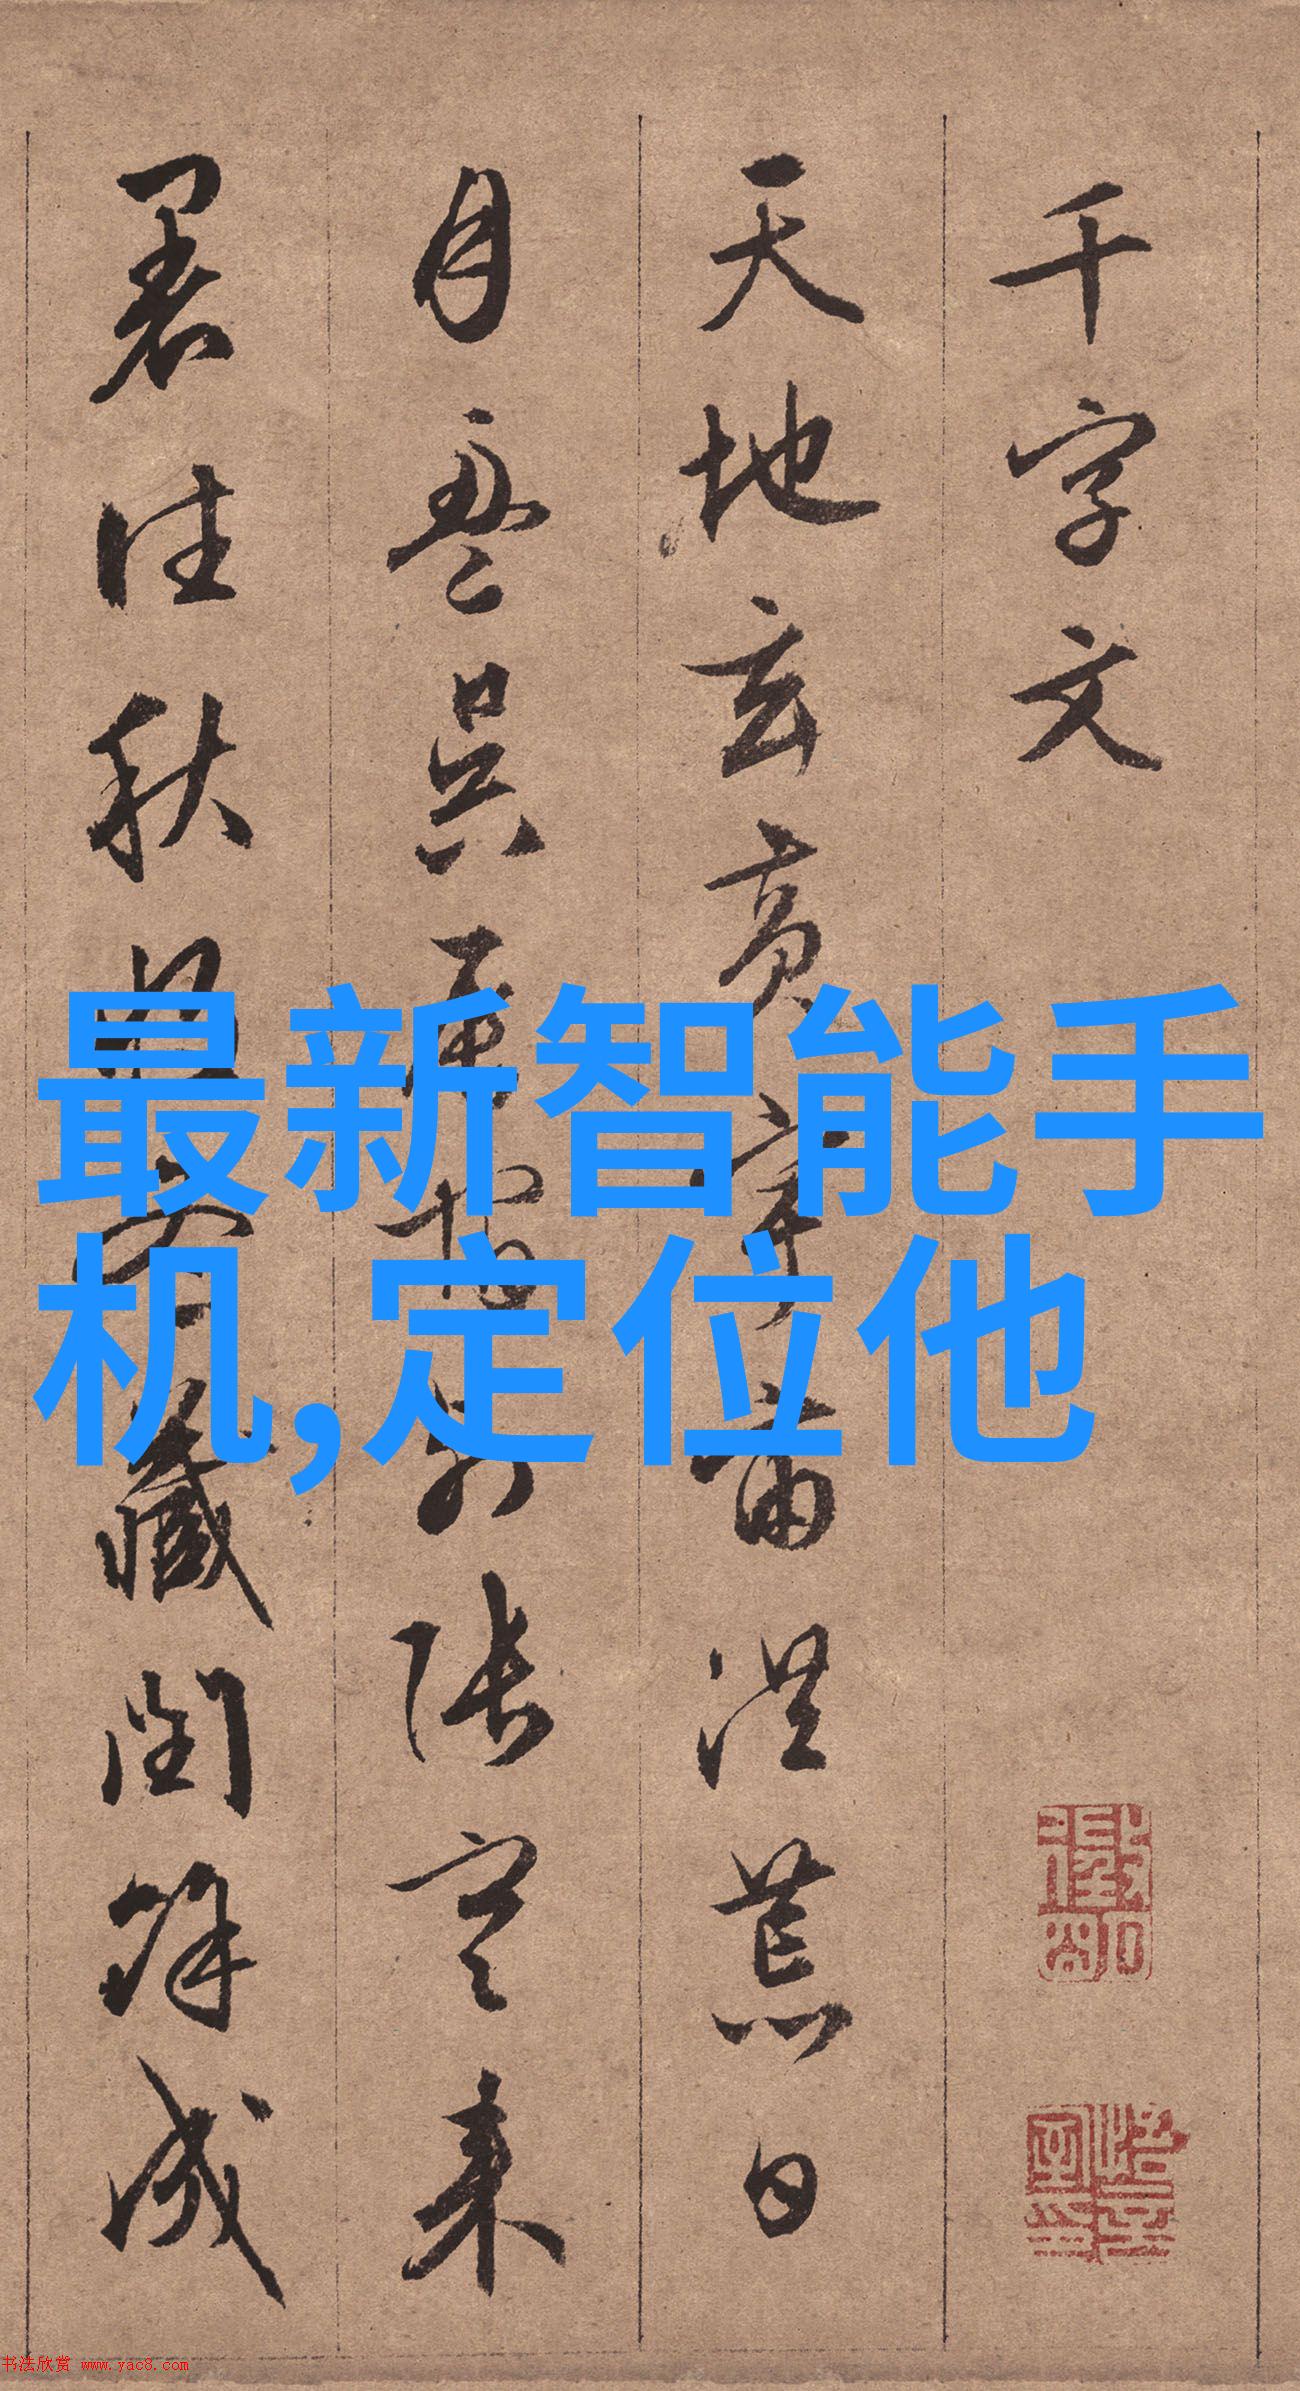 千字文
天地玄黄宇宙洪荒日
月盈昃辰宿列张寒来
暑往秋收冬藏闰余成
最新智能手
机,定位他
书法欣赏 www.yac8.com